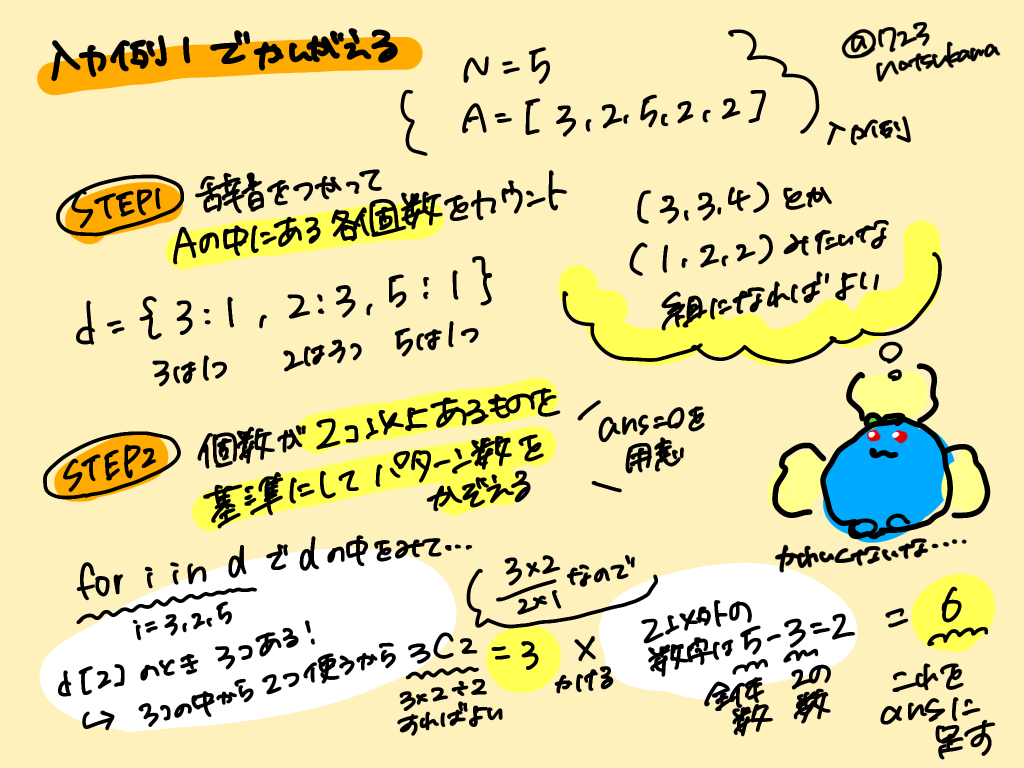 入力例1でかんがえる
@1723
natsukawa
N=5
A=[3,2,5,2,2]
入力例
STEP1
辞書をつかって
Aの中にある各個数をカウント
d={3:1,2:3,5:1}
3は1つ 2は3つ 5は1つ
(3,3,4)とか
(1,2,2)みたいな
組になればよい
STEP2
個数が2コ以上あるものを
基準にしてパターン数を
かぞえる
ans=0を
用意
かわいくないな....
for i in dでdの中をみて...
i=3,2,5
d[2]のとき3つある!
↳3つの中から2つ使うから3C2=3
3×2÷2
すればよい
3×2/2×1なので
×
かける
2以外の
数字は5-3=2
全体数
2の数
=6
これを
ansに
足す